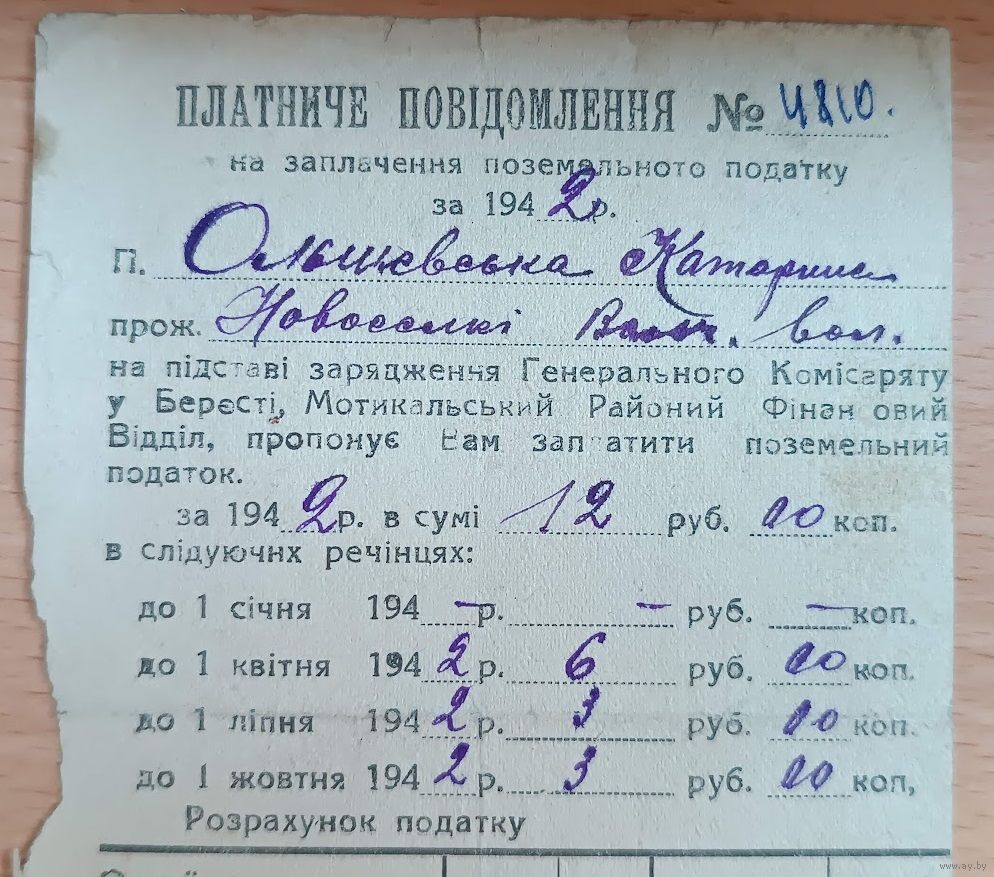 ПЛАТНИЧЕ ПОВІДОМЛЕННЯ № 4810.
на заплачення поземельного податку
за 1942р.
П. Ольшевська Катарина
прож. Новоселкі вол.
на підставі зарядження Генерального Комісаряту
у Берестi, Мотикальський Районий Фінансовий
Відділ, пропонує Вам заплатити поземельний
податок.
за 1942р. в сумі 12 руб. 00 коп.
в слідуючнх речінцях:
до 1 січня 194 – р. – руб. – коп.
до 1 квітня 1942 р. 6 руб. 00 коп.
до 1 ліпня 1942 р. 3 руб. 00 коп.
до 1 жовтня 1942 р. 3 руб. 00 коп,
Розрахунок податку
www.ay.by